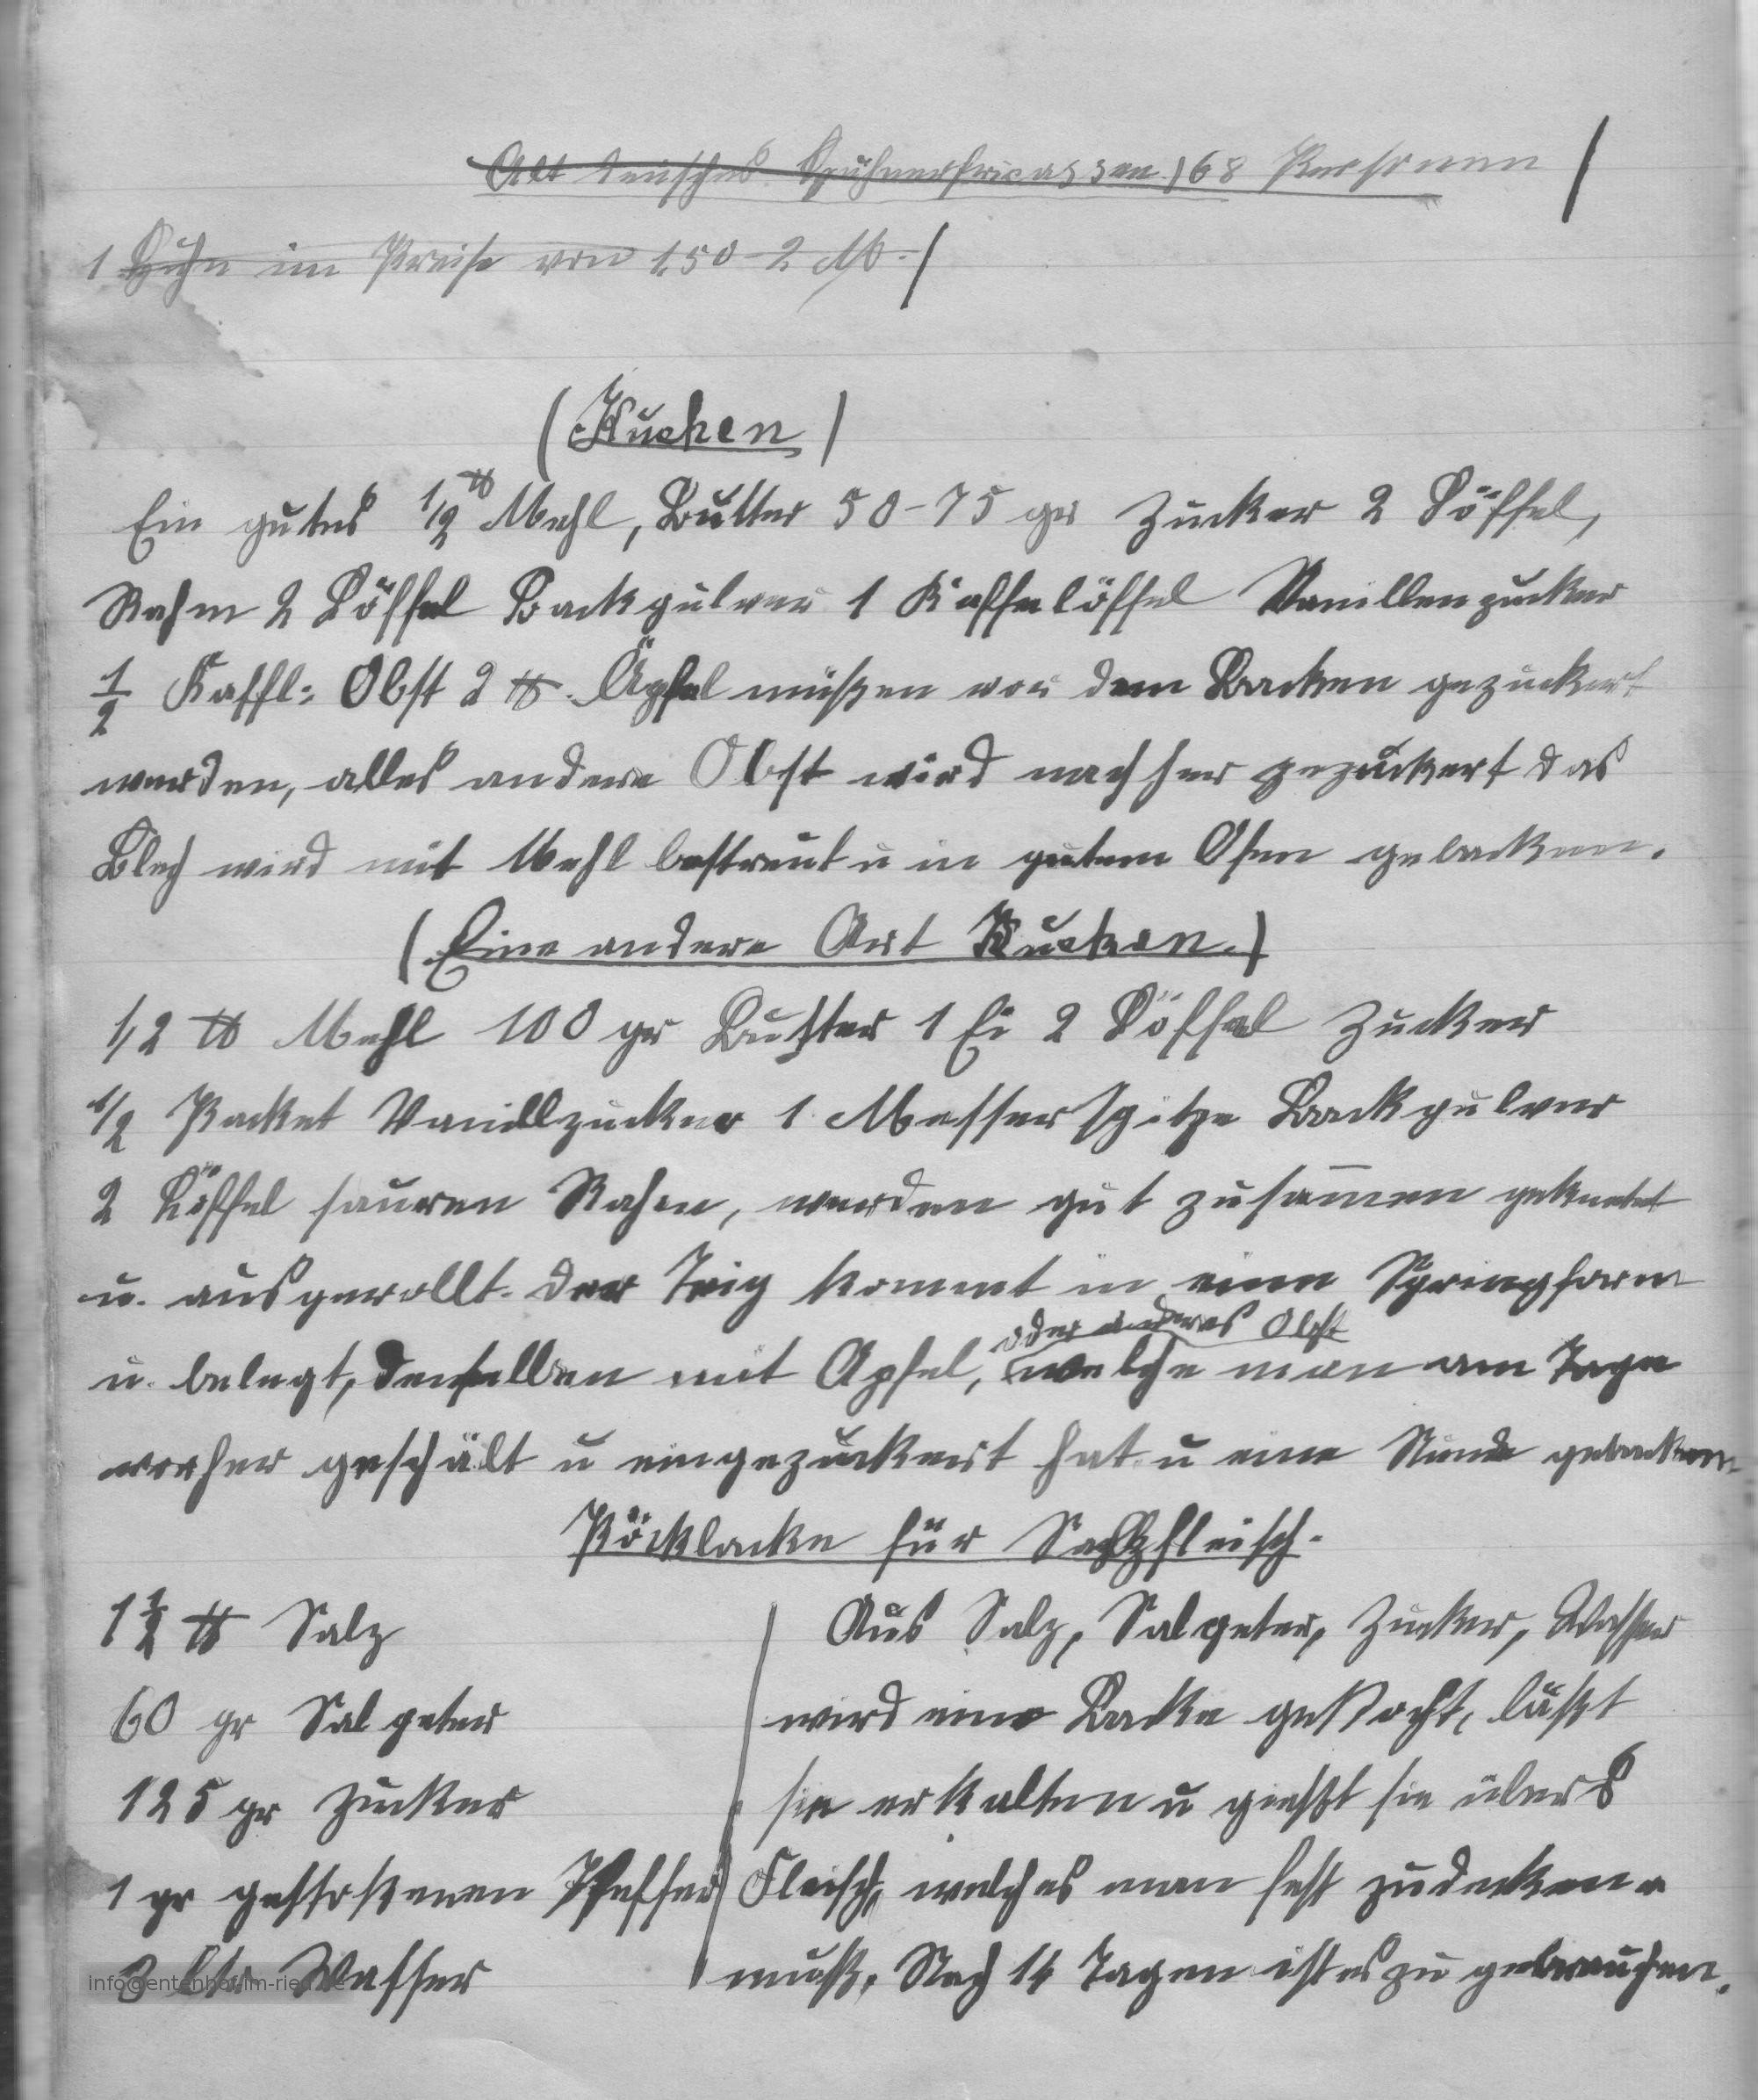 Alt deutsches Hühnerfricassee. 168 Personen
1 Huhn im Preise von 1.50-2 M.
(Kuchen)
Ein gutes 1/2 ℔ Mehl, Butter 50-75 gr Zucker 2 Löffel,
Rahm 2 Löffel Backpulver 1 Kaffelöffel Vanillenzucker
1/2 Kaffl: Obst 2 ℔. Äpfel müßen vor dem Backen gezuckert
werden, alles andere Obst wird nachher gezuckert das
Blech wird mit Mehl bestreut u in gutem Ofen gebacken.
(Eine andere Art Kuchen.)
1/2 ℔ Mehl 100 gr Butter 1 Ei 2 Löffel Zucker
1/2 Packet Vanillzucker 1 Messerspitze Backpulver
2 Löffel sauren Rahm, werden gut zusam̅en geknetet
u. ausgerollt. Der Teig kommt in eine Springform
oder anderes Obst
u. belegt, denselben mit Apfel, welche man am Tage
vorher geschält u eingezuckert hat u eine Stunde gebacken
Pöcklacke für Salzfleisch.
1 1/2 ℔ Salz
60 gr Salpeter
125 gr Zucker
1 gr gestoßenen Pfeffer
3 ltr Wasser
Aus Salz, Salpeter, Zucker, Wasser
wird eine Lacke gekocht, läßt
sie erkalten u gießt sie übers
Fleisch, welches man fest zudecken
muß. Nach 14 Tagen ist es zu gebrauchen.